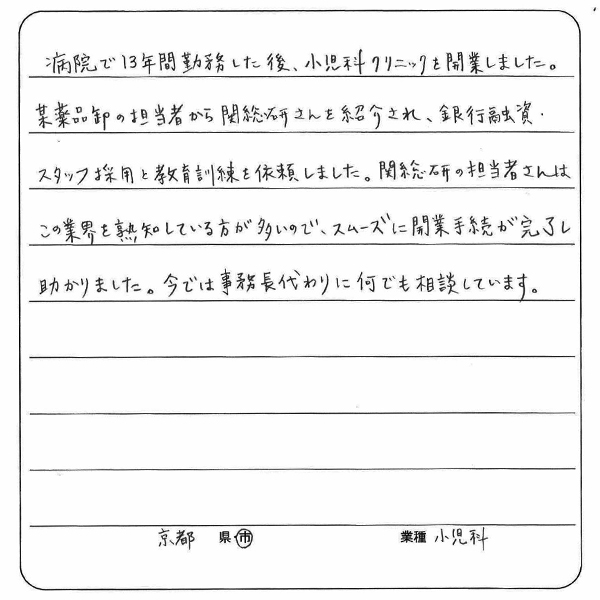 病院で13年間勤務した後、小児科クリニックを開業しました。
某薬品卸の担当者から関総研さんを紹介され、銀行融資・
スタッフ採用と教育訓練を依頼しました。関総研の担当者さんは
この業界を熟知している方が多いので、スムーズに開業手続が完了し
助かりました。今では事務長代わりに何でも相談しています。
京都 県市 業種 小児科